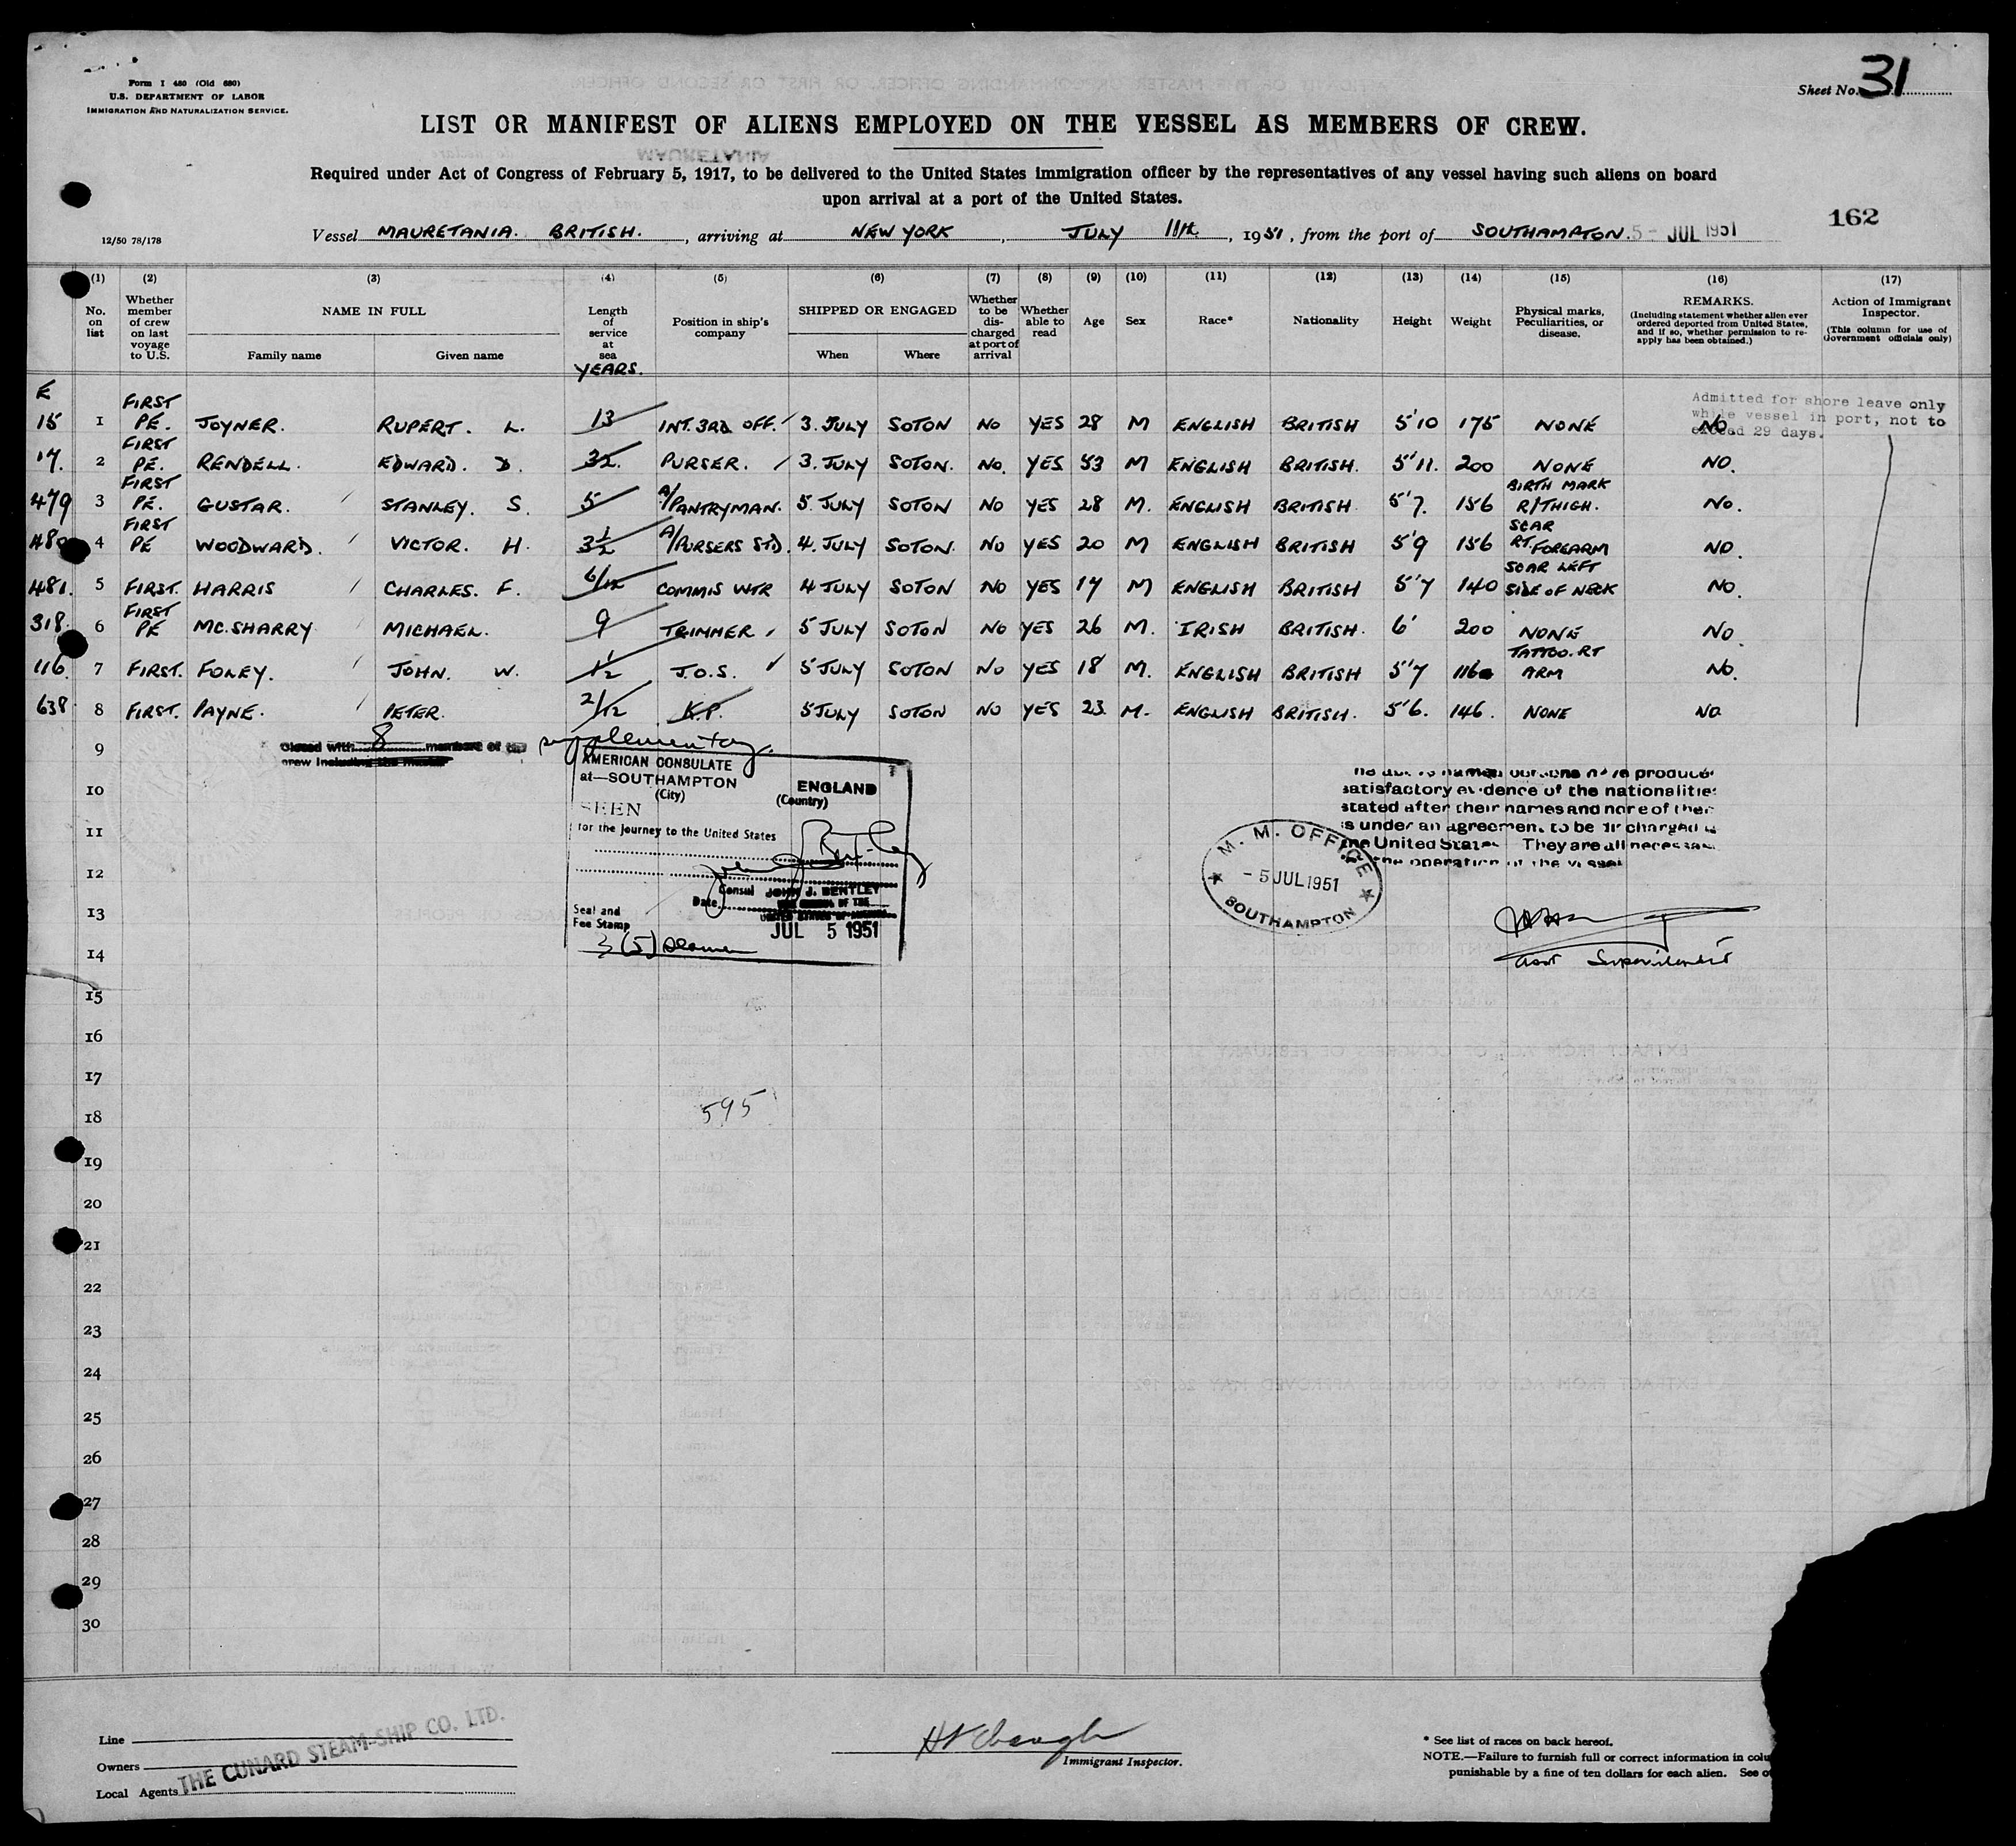 Form I 480 (Old 680)
U.S. DEPARTMENT OF LABOR
IMMIGRATION AND NATURALIZATION SERVICE.
Sheet No. 31
LIST OR MANIFEST OF ALIENS EMPLOYED ON THE VESSEL AS MEMBERS OF CREW.
Required under Act of Congress of February 5, 1917, to be delivered to the United States immigration officer by the representatives of any vessel having such aliens on board
upon arrival at a port of the United States.
162
12/50 78/178
Vessel MAURETANIA. BRITISH., arriving at NEW YORK, JULY 11th, 1951, from the port of SOUTHAMPTON. 5 - JUL 1951
(1) (2) (3) (4) (5) (6) (7) (8) (9) (10) (11) (12) (13) (14) (15) (16) (17)
No. on list
Whether member of crew on last voyage to U.S.
NAME IN FULL
Family name Given name
Length of service at sea
YEARS.
Position in ship's company
SHIPPED OR ENGAGED
When Where
Whether to be discharged at port of arrival
Whether able to read
Age
Sex
Race*
Nationality
Height
Weight
Physical marks, Peculiarities, or disease.
REMARKS.
(Including statement whether alien ever ordered deported from United States, and if so, whether permission to re-apply has been obtained.)
Action of Immigrant Inspector.
(This column for use of Government officials only)
E
Admitted for shore leave only
while vessel in port, not to
exceed 29 days.
15 1 FIRST PE. JOYNER. RUPERT. L. 13 INT. 3RD OFF. 3. JULY SOTON NO YES 28 M ENGLISH BRITISH 5'10 175 NONE NO
17. 2 FIRST PE. RENDELL. EDWARD. D. 32. PURSER. 3. JULY SOTON. NO. YES 53 M ENGLISH BRITISH. 5'11. 200 NONE NO.
479 3 FIRST PE. GUSTAR. STANLEY. S. 5 A/PANTRYMAN. 5. JULY SOTON NO YES 28 M. ENGLISH BRITISH 5'7. 156 BIRTH MARK R/THIGH. NO.
480 4 FIRST PE WOODWARD. VICTOR. H. 3½ A/PURSERS STD. 4. JULY SOTON. NO YES 20 M ENGLISH BRITISH 5'9 156 SCAR RT. FOREARM NO.
481. 5 FIRST. HARRIS CHARLES. F. 6/12 COMMIS WTR 4 JULY SOTON NO YES 17 M ENGLISH BRITISH 5'7 140 SCAR LEFT SIDE OF NECK NO.
318. 6 FIRST PE MC.SHARRY MICHAEL. 9 TRIMMER 5 JULY SOTON NO YES 26 M. IRISH BRITISH. 6' 200 NONE NO
116. 7 FIRST. FOLEY. JOHN. W. 1½ J.O.S. 5 JULY SOTON NO YES 18 M. ENGLISH BRITISH 5'7 116 TATTOO. RT ARM NO.
638 8 FIRST. PAYNE. PETER. 2/12 K.P. 5 JULY SOTON NO YES 23. M. ENGLISH BRITISH. 5'6. 146. NONE NO
9
Closed with 8 members of the supplementary.
crew including the master
AMERICAN CONSULATE
at—SOUTHAMPTON ENGLAND
(City) (Country)
SEEN
for the journey to the United States
Consul JOHN J. BENTLEY
Date
UNITED STATES OF AMERICA
JUL 5 1951
Seal and
Fee Stamp
named persons have produce
satisfactory evidence of the nationalities
stated after their names and none of them
is under an agreement to be discharged
the United States They are all necessary
the operation of the vessel
M. M. OFFICE
- 5 JUL 1951
SOUTHAMPTON
Asst Superintendent
10
11
12
13
14
15
16
17
18
595
19
20
21
22
23
24
25
26
27
28
29
30
Line
Owners
Local Agents
THE CUNARD STEAM-SHIP CO. LTD.
Immigrant Inspector.
* See list of races on back hereof.
NOTE.—Failure to furnish full or correct information in
punishable by a fine of ten dollars for each alien. See